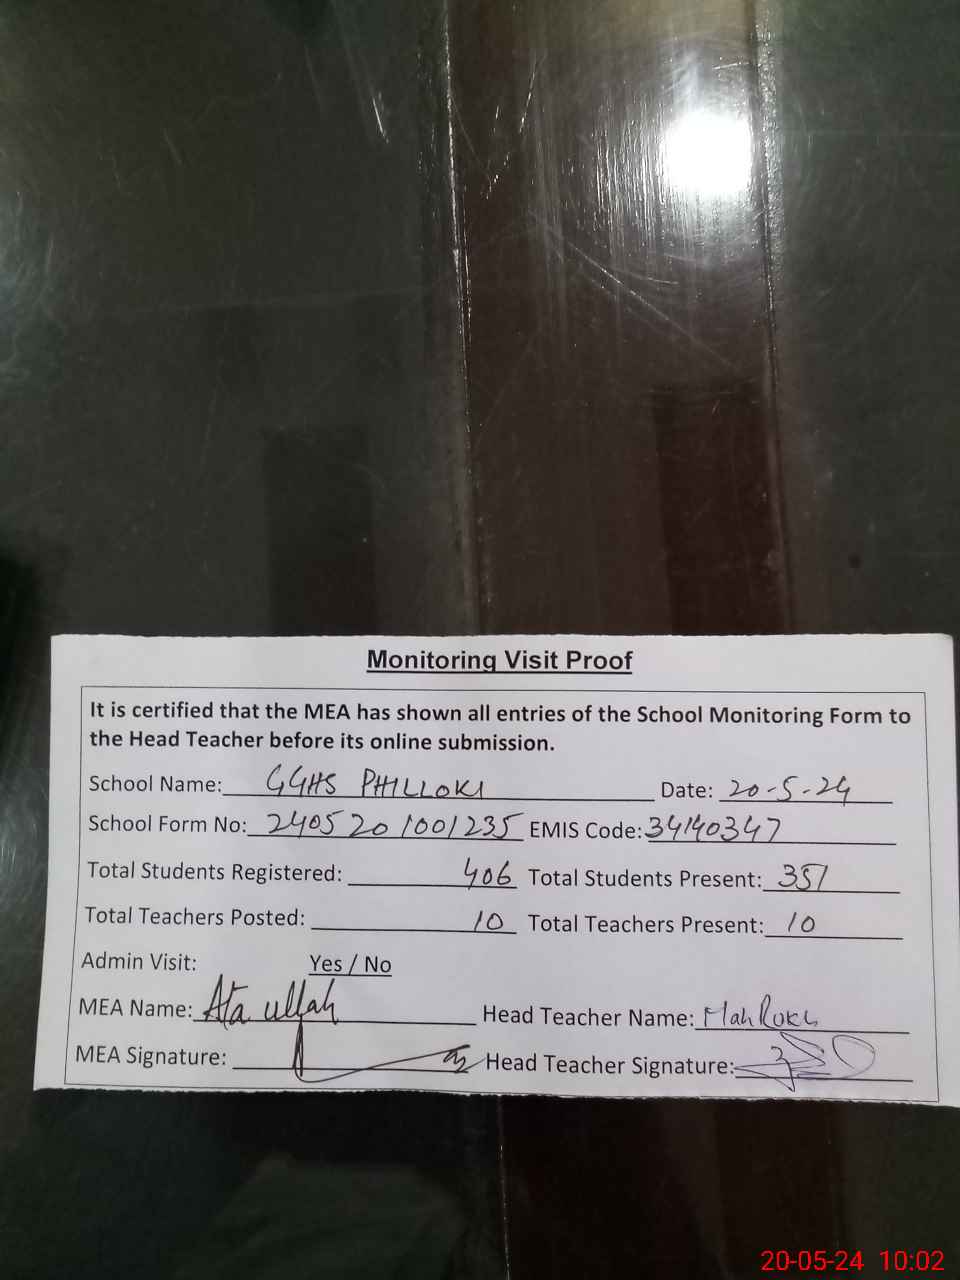 Monitoring Visit Proof
It is certified that the MEA has shown all entries of the School Monitoring Form to
the Head Teacher before its online submission.
School Name: GGHS PHILLOKI Date: 20-5-24
School Form No: 2405201001235 EMIS Code: 34140347
Total Students Registered: 406 Total Students Present: 351
Total Teachers Posted: 10 Total Teachers Present: 10
Admin Visit: Yes / No
MEA Name: Ata ullah Head Teacher Name: Mah Rukh
MEA Signature: Head Teacher Signature:
20-05-24 10:02